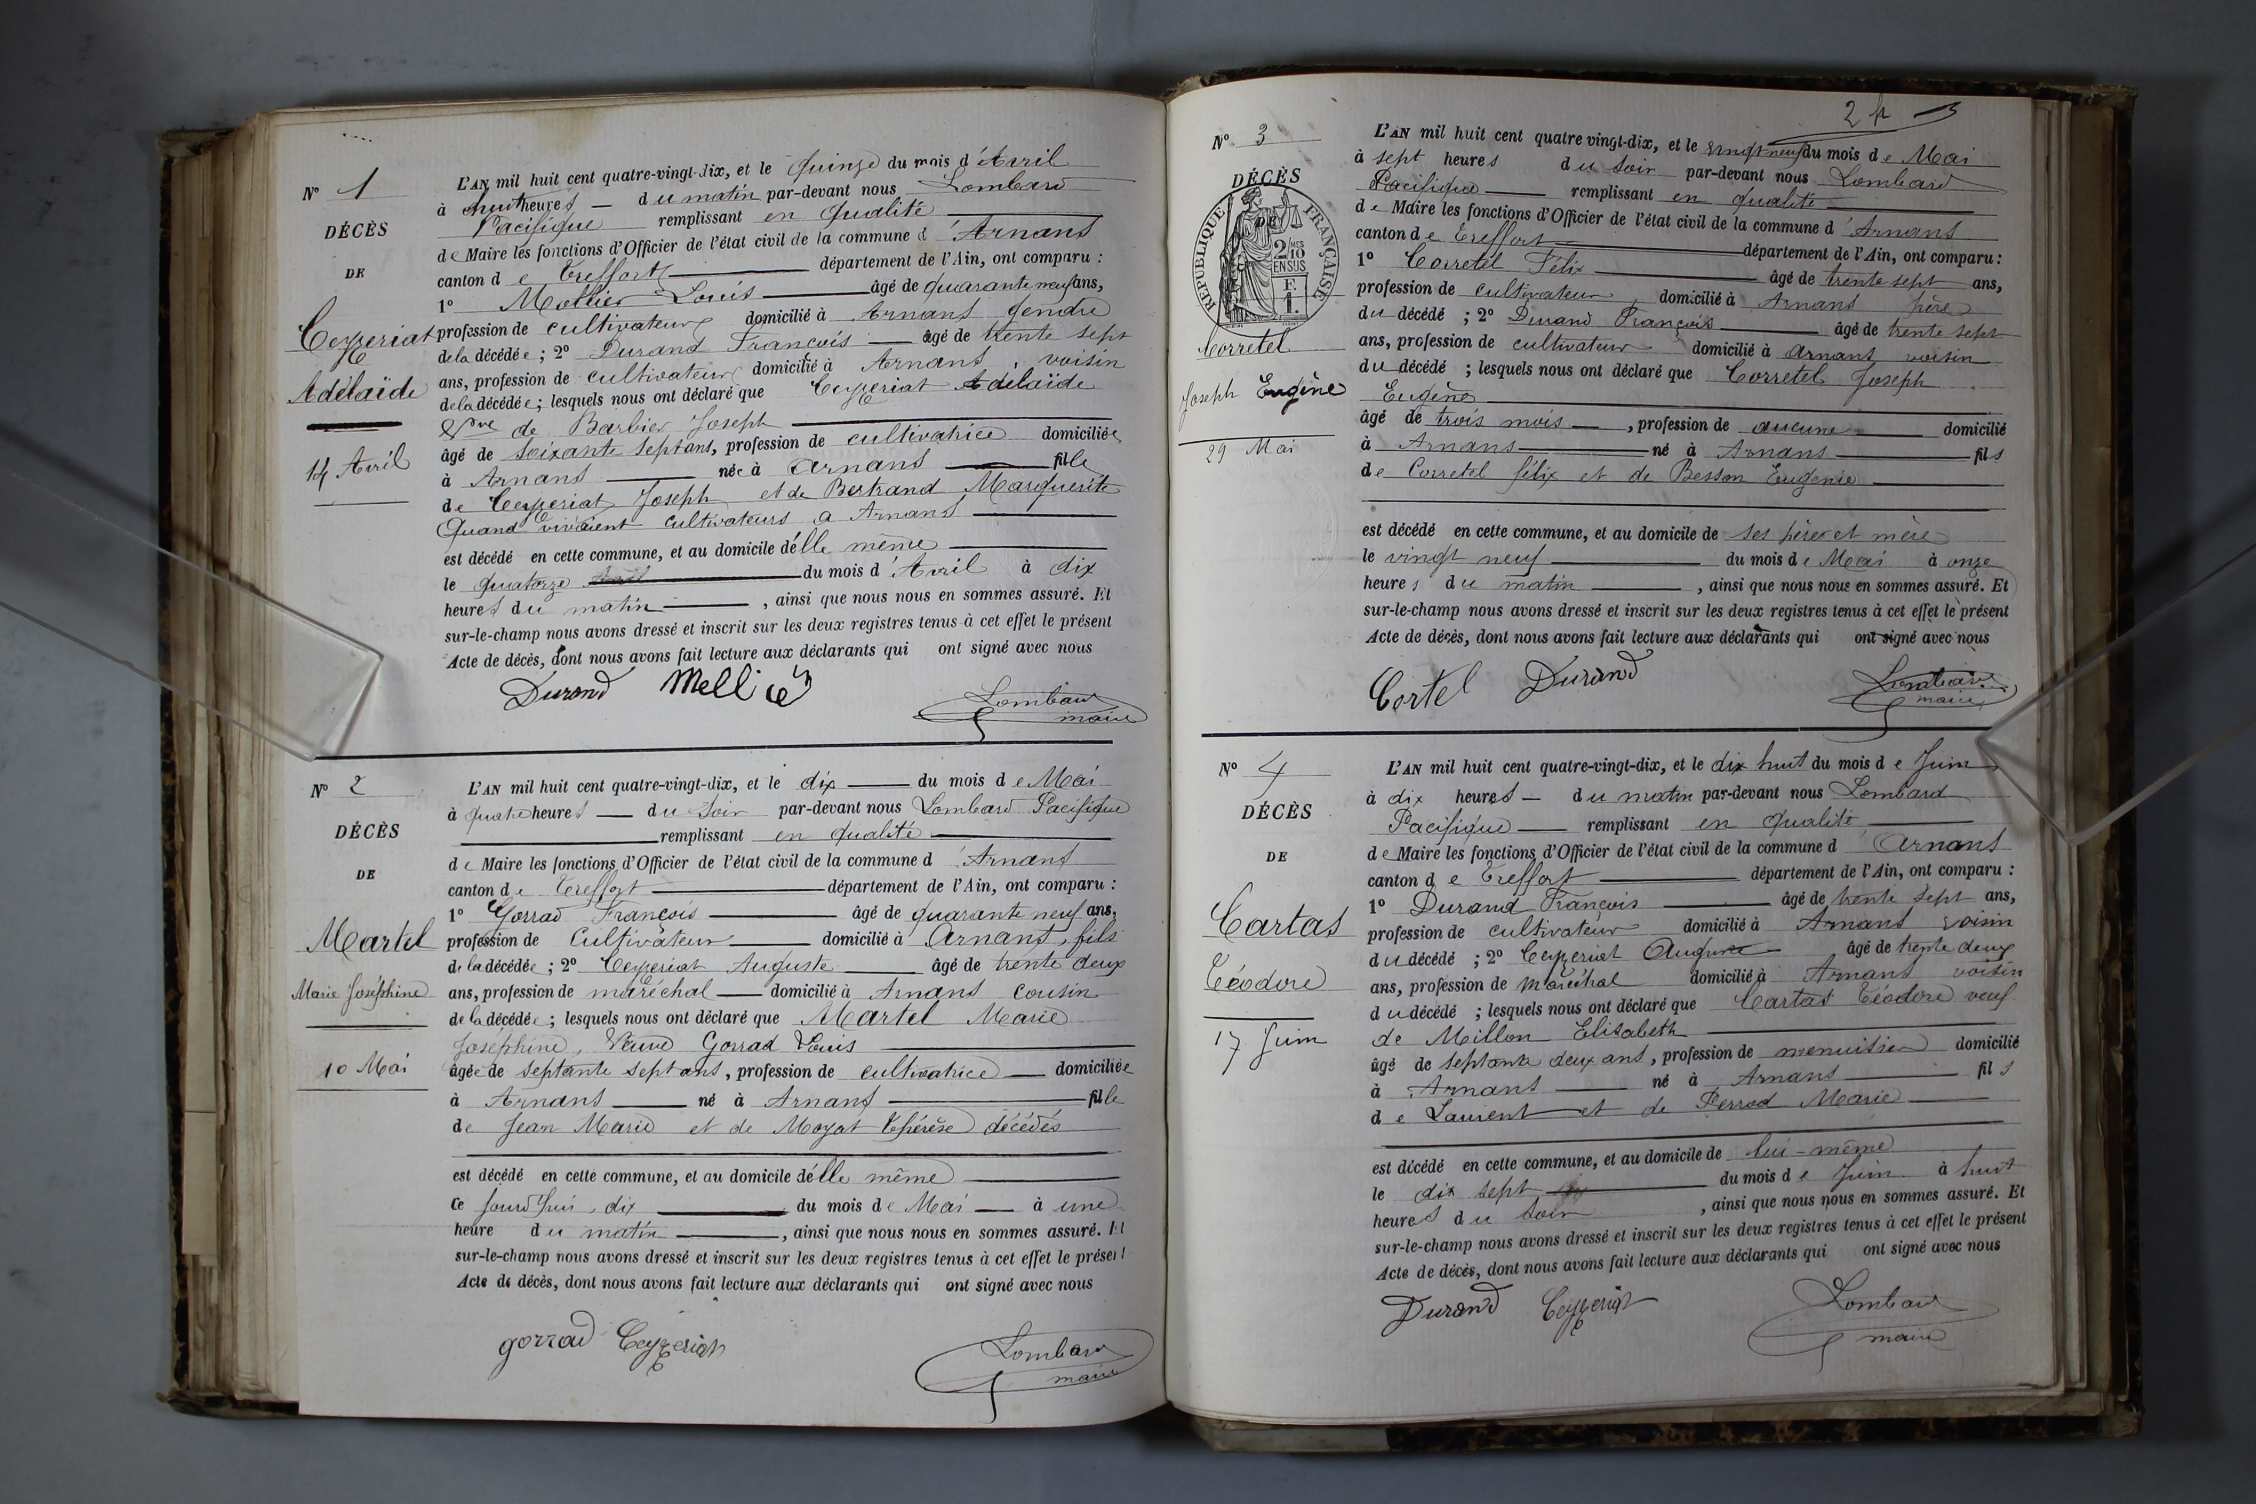 Nº 1
DÉCÈS
DE
Ceyzeriat
Adélaïde
14 Avril
L'AN mil huit cent quatre-vingt-dix, et le quinze du mois d'Avril
à huit heures — du matin par-devant nous Lombard
Pacifique remplissant en qualité
de Maire les fonctions d'Officier de l'état civil de la commune d'Arnans
canton de Treffort département de l'Ain, ont comparu :
1º Mollier Louis âgé de quarante neuf ans,
profession de cultivateur domicilié à Arnans gendre
de la décédée ; 2º Durand François — âgé de trente sept
ans, profession de cultivateur domicilié à Arnans, voisin
de la décédée ; lesquels nous ont déclaré que Ceyzeriat Adélaïde
Vve de Barbier Joseph
âgé de soixante sept ans, profession de cultivatrice domiciliée
à Arnans née à Arnans fille
de Ceyzeriat Joseph et de Bertrand Marguerite
Quand vivaient cultivateurs à Arnans
est décédé en cette commune, et au domicile d'élle même
le quatorze du mois d'Avril à dix
heures du matin , ainsi que nous nous en sommes assuré. Et
sur-le-champ nous avons dressé et inscrit sur les deux registres tenus à cet effet le présent
Acte de décès, dont nous avons fait lecture aux déclarants qui ont signé avec nous
Durand Mellier Lombard
maire
Nº 2
DÉCÈS
DE
Martel
Marie Joséphine
10 Mai
L'AN mil huit cent quatre-vingt-dix, et le dix du mois de Mai
à quatre heures — du soir par-devant nous Lombard Pacifique
remplissant en qualité
de Maire les fonctions d'Officier de l'état civil de la commune d'Arnans
canton de Treffort département de l'Ain, ont comparu :
1º Gorrad François âgé de quarante neuf ans,
profession de Cultivateur domicilié à Arnans, fils
de la décédée ; 2º Ceyzeriat Auguste âgé de trente deux
ans, profession de maréchal domicilié à Arnans cousin
de la décédée ; lesquels nous ont déclaré que Martel Marie
Joséphine, Veuve Gorrad Louis
âgée de septante sept ans, profession de cultivatrice domiciliée
à Arnans né à Arnans fille
de Jean Marie et de Moyat Thérèse décédés
est décédé en cette commune, et au domicile d'élle même
Ce jourd'hui dix du mois de Mai — à une
heure du matin , ainsi que nous nous en sommes assuré. Et
sur-le-champ nous avons dressé et inscrit sur les deux registres tenus à cet effet le présent
Acte de décès, dont nous avons fait lecture aux déclarants qui ont signé avec nous
gorrad Ceyzeriat Lombard
maire
2
Nº 3
DÉCÈS
DE
RÉPUBLIQUE FRANÇAISE
2/10 MES
EN SUS
F.
1.
Corretel
Joseph Eugène
29 Mai
L'AN mil huit cent quatre vingt-dix, et le vingt neuf du mois de Mai
à sept heures du soir par-devant nous Lombard
Pacifique remplissant en qualité
de Maire les fonctions d'Officier de l'état civil de la commune d'Arnans
canton de Treffort département de l'Ain, ont comparu :
1º Corretel Félix âgé de trente sept ans,
profession de cultivateur, domicilié à Arnans père
du décédé ; 2º Durand François âgé de trente sept
ans, profession de cultivateur domicilié à Arnans voisin
du décédé ; lesquels nous ont déclaré que Corretel Joseph
Eugène
âgé de trois mois , profession de aucune domicilié
à Arnans né à Arnans fils
de Corretel félix et de Besson Eugénie
est décédé en cette commune, et au domicile de ses père et mère
le vingt neuf du mois de Mai à onze
heures du matin , ainsi que nous nous en sommes assuré. Et
sur-le-champ nous avons dressé et inscrit sur les deux registres tenus à cet effet le présent
Acte de décès, dont nous avons fait lecture aux déclarants qui ont signé avec nous
Cortel Durand Lombard
maire
Nº 4
DÉCÈS
DE
Cartas
Téodore
17 Juin
L'AN mil huit cent quatre-vingt-dix, et le dix huit du mois de Juin
à dix heures — du matin par-devant nous Lombard
Pacifique remplissant en qualité
de Maire les fonctions d'Officier de l'état civil de la commune d'Arnans
canton de Treffort département de l'Ain, ont comparu :
1º Durand François âgé de trente sept ans,
profession de cultivateur domicilié à Arnans voisin
du décédé ; 2º Ceyzeriat Auguste âgé de trente deux
ans, profession de Maréchal domicilié à Arnans voisin
du décédé ; lesquels nous ont déclaré que Cartas Téodore veuf
de Millon Elisabeth
âgé de septante deux ans, profession de menuisier domicilié
à Arnans né à Arnans fils
de Laurent et de Ferrod Marie
est décédé en cette commune, et au domicile de lui-même
le dix sept du mois de Juin à huit
heures du soir , ainsi que nous nous en sommes assuré. Et
sur-le-champ nous avons dressé et inscrit sur les deux registres tenus à cet effet le présent
Acte de décès, dont nous avons fait lecture aux déclarants qui ont signé avec nous
Durand Ceyzeriat Lombard
maire